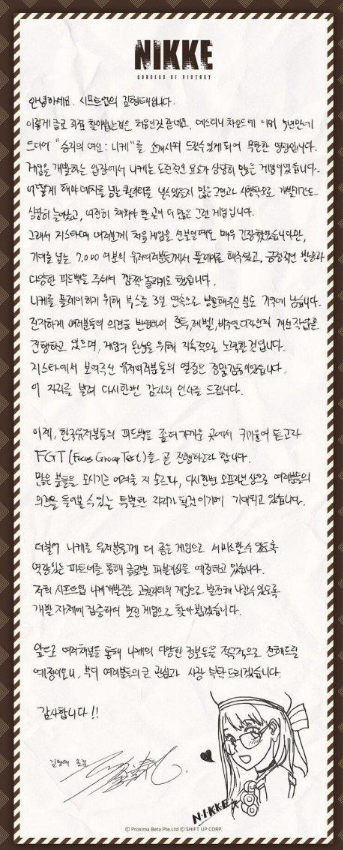 NIKKE
GODDESS OF VICTORY
안녕하세요. 시프트업의 김형태입니다.
이렇게 글로 직접 찾아뵙는것은 처음인것 같네요. 데스티니 차일드에 이어 5년만에
드디어 "승리의 여신: 니케"를 소개시켜 드릴수 있게 되어 무한한 영광입니다.
게임을 개발하는 입장에서 니케는 도전적인 요소가 상당히 많은 게임이었습니다.
상당히 늘어났고, 여전히 채워야 할 곳이 더 많은 그런 게임입니다.
그래서 지스타에 여러분께 처음 게임을 선보일때도 매우 긴장했었습니다만,
기대를 넘는 7,000 여분의 유저여러분들께서 플레이를 해주셨고, 긍정적인 반응과
다양한 피드백을 주셔서 깜짝 놀라기도 했습니다.
니케를 플레이하기 위해 부스를 3일 연속으로 방문해주신 분도 기억에 남습니다.
진행하고 있으며, 게임의 완성을 위해 지속적으로 노력할 것입니다.
지스타에서 보여주신 유저여러분들의 열정은 정말 감동이었습니다.
이 자리를 빌려 다시한번 감사의 인사를 드립니다.
이제, 한국유저분들의 피드백을 좀더 가까운 곳에서 귀기울여 듣고자
FGT (Focus Group Test)를 곧 진행하고자 합니다.
많은 분들을 모시기는 어려울 지 모르나, 다시한번 오프라인상으로 여러분들의
의견을 들어볼 수 있는 특별한 자리가 될것이기에 기대되고 있습니다.
더불어 니케를 유저분들께 더 좋은 게임으로 서비스할 수 있도록
역량있는 파트너를 통해 글로벌 퍼블리싱을 예정하고 있습니다.
저희 시프트업 니케개발진은 고퀄리티의 게임으로 발전해 나갈수 있도록
개발 자체에 집중하여 멋진 게임으로 찾아뵙겠습니다.
앞으로 여러채널을 통해 니케의 다양한 정보들을 적극적으로 전해드릴
예정이오니, 부디 여러분들의 큰 관심과 사랑 부탁드리겠습니다.
감사합니다!!
김형태 드림
NIKKE
© Proxima Beta Pte.Ltd © SHIFT UP CORP.